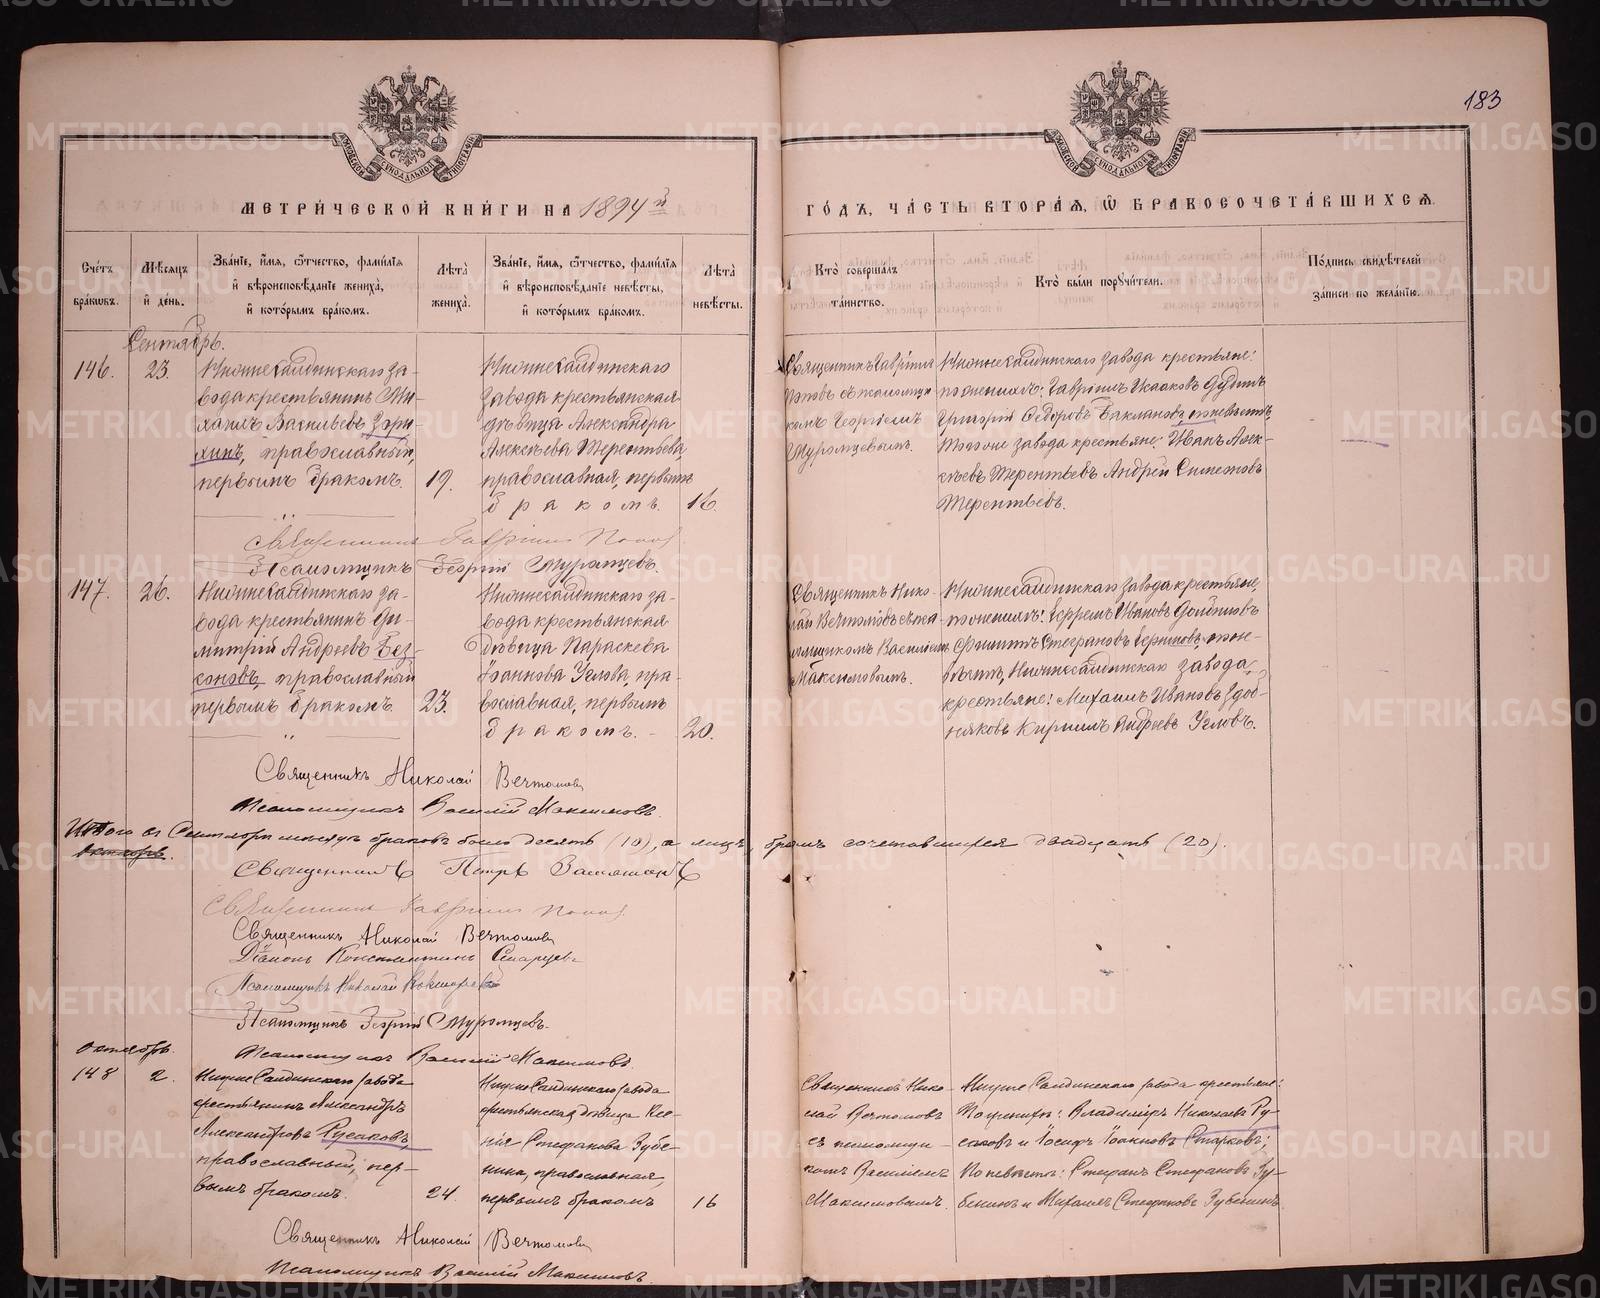 183
МЕТРИЧЕСКОЙ КНИГИ НА 1894й
ГОДЪ, ЧАСТЬ ВТОРАЯ, Ѡ БРАКОСОЧЕТАВШИХСЯ.
Счетъ браковъ.
Мѣсяцъ и день.
Званіе, имя, отчество, фамилія и вѣроисповѣданіе жениха, и которымъ бракомъ.
Лѣта жениха.
Званіе, имя, отчество, фамилія и вѣроисповѣданіе невѣсты, и которымъ бракомъ.
Лѣта невѣсты.
Кто совершалъ таинство.
Кто были поручители.
Подпись свидѣтелей записи по желанію.
Сентябрь.
146.
23.
Нижнесалдинскаго за-
вода крестьянинъ Ми-
хаилъ Васильевъ Зори-
хинъ, православный,
первымъ бракомъ.
19.
Нижнесалдинскаго
завода крестьянская
дѣвица Александра
Алексѣева Терентьева,
православная, первымъ
бракомъ.
16.
Священникъ Гавріилъ
Поповъ съ псаломщи-
комъ Георгіемъ
Муромцевымъ.
Нижнесалдинскаго завода крестьяне:
по женихѣ: Гавріилъ Исааковъ Дудинъ
Григорій Ѳедоровъ Баклановъ, по невѣстѣ,
Тогоже завода крестьяне: Иванъ Алек-
сѣевъ Терентьевъ Андрей Симеоновъ
Терентьевъ.
Священникъ Гавріилъ Поповъ
Псаломщикъ Георгій Муромцевъ.
147.
26.
Нижнесалдинскаго за-
вода крестьянинъ Ди-
митрій Андреевъ Без-
соновъ, православный
первымъ бракомъ.
23.
Нижнесалдинскаго за-
вода крестьянская
дѣвица Параскева
Іоаннова Углова, пра-
вославная, первымъ
бракомъ. -
20.
Священникъ Нико-
лай Вечтомовъ съ пса-
ломщикомъ Василіемъ
Максимовымъ.
Нижнесалдинскаго завода крестьяне,
по женихѣ: Ефремъ Ивановъ
Филиппъ Стефановъ по не-
вѣстѣ, Нижнесалдинскаго завода,
крестьяне: Михаилъ Ивановъ Здоб-
няковъ Кириллъ Андреевъ Угловъ.
Священникъ Николай Вечтомовъ
Псаломщикъ Василій Максимовъ.
Итого въ Сентябрѣ мѣсяцѣ браковъ было десять (10), а лицъ, бракомъ сочетавшихся двадцать (20).
Октябрь.
Священникъ Петръ
Священникъ Гавріилъ Поповъ
Священникъ Николай Вечтомовъ
Діаконъ Константинъ Старцевъ
Псаломщикъ Николай
Псаломщикъ Георгій Муромцевъ.
Псаломщикъ Василій Максимовъ.
Октябрь.
148
2.
Нижне Салдинскаго завода
крестьянинъ Александръ
Александровъ Русаковъ,
православный, пер-
вымъ бракомъ.
24.
Нижне Салдинскаго завода
крестьянская дѣвица Ксе-
нія Стефанова Зубе-
нина, православная,
первымъ бракомъ
16
Священникъ Нико-
лай Вечтомовъ
съ псаломщи-
комъ Василіемъ
Максимовымъ.
Нижне Салдинскаго завода крестьяне:
По женихѣ: Владиміръ Николаевъ Ру-
саковъ и Іосифъ Іоанновъ Старковъ;
По невѣстѣ: Стефанъ Стефановъ Зу-
бенинъ и Михаилъ Стефановъ Зубенинъ.
Священникъ Николай Вечтомовъ
Псаломщикъ Василій Максимовъ.
METRIKI.GASO-URAL.RU